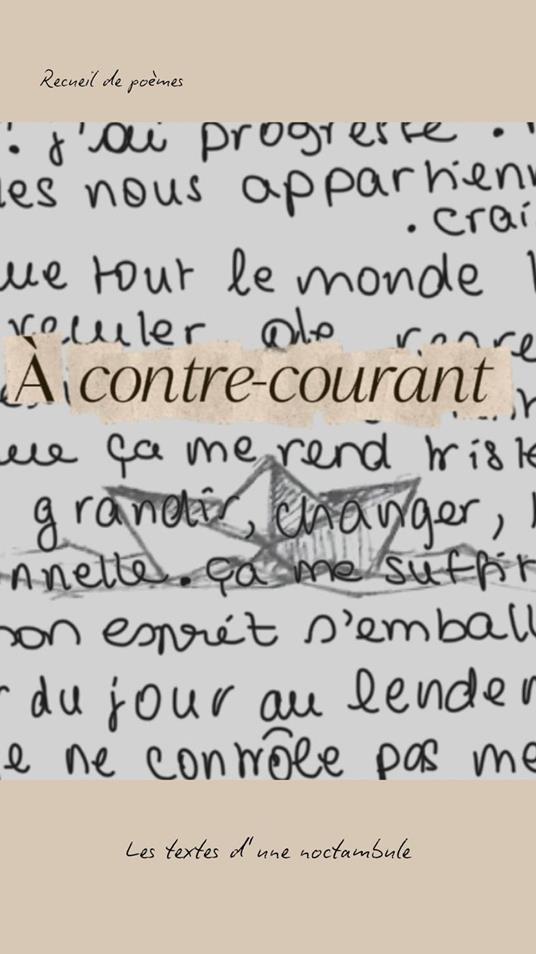 Recueil de poèmes
. j'ai progressé .
les nous appartienn
. crai
ue tout le monde
reculer de
À contre-courant
ue ça me rend triste
grandir, changer,
nnelle. ça me suffir
on esprit s'emball
du jour au lendem
e ne contrôle pas me
Les textes d'une noctambule